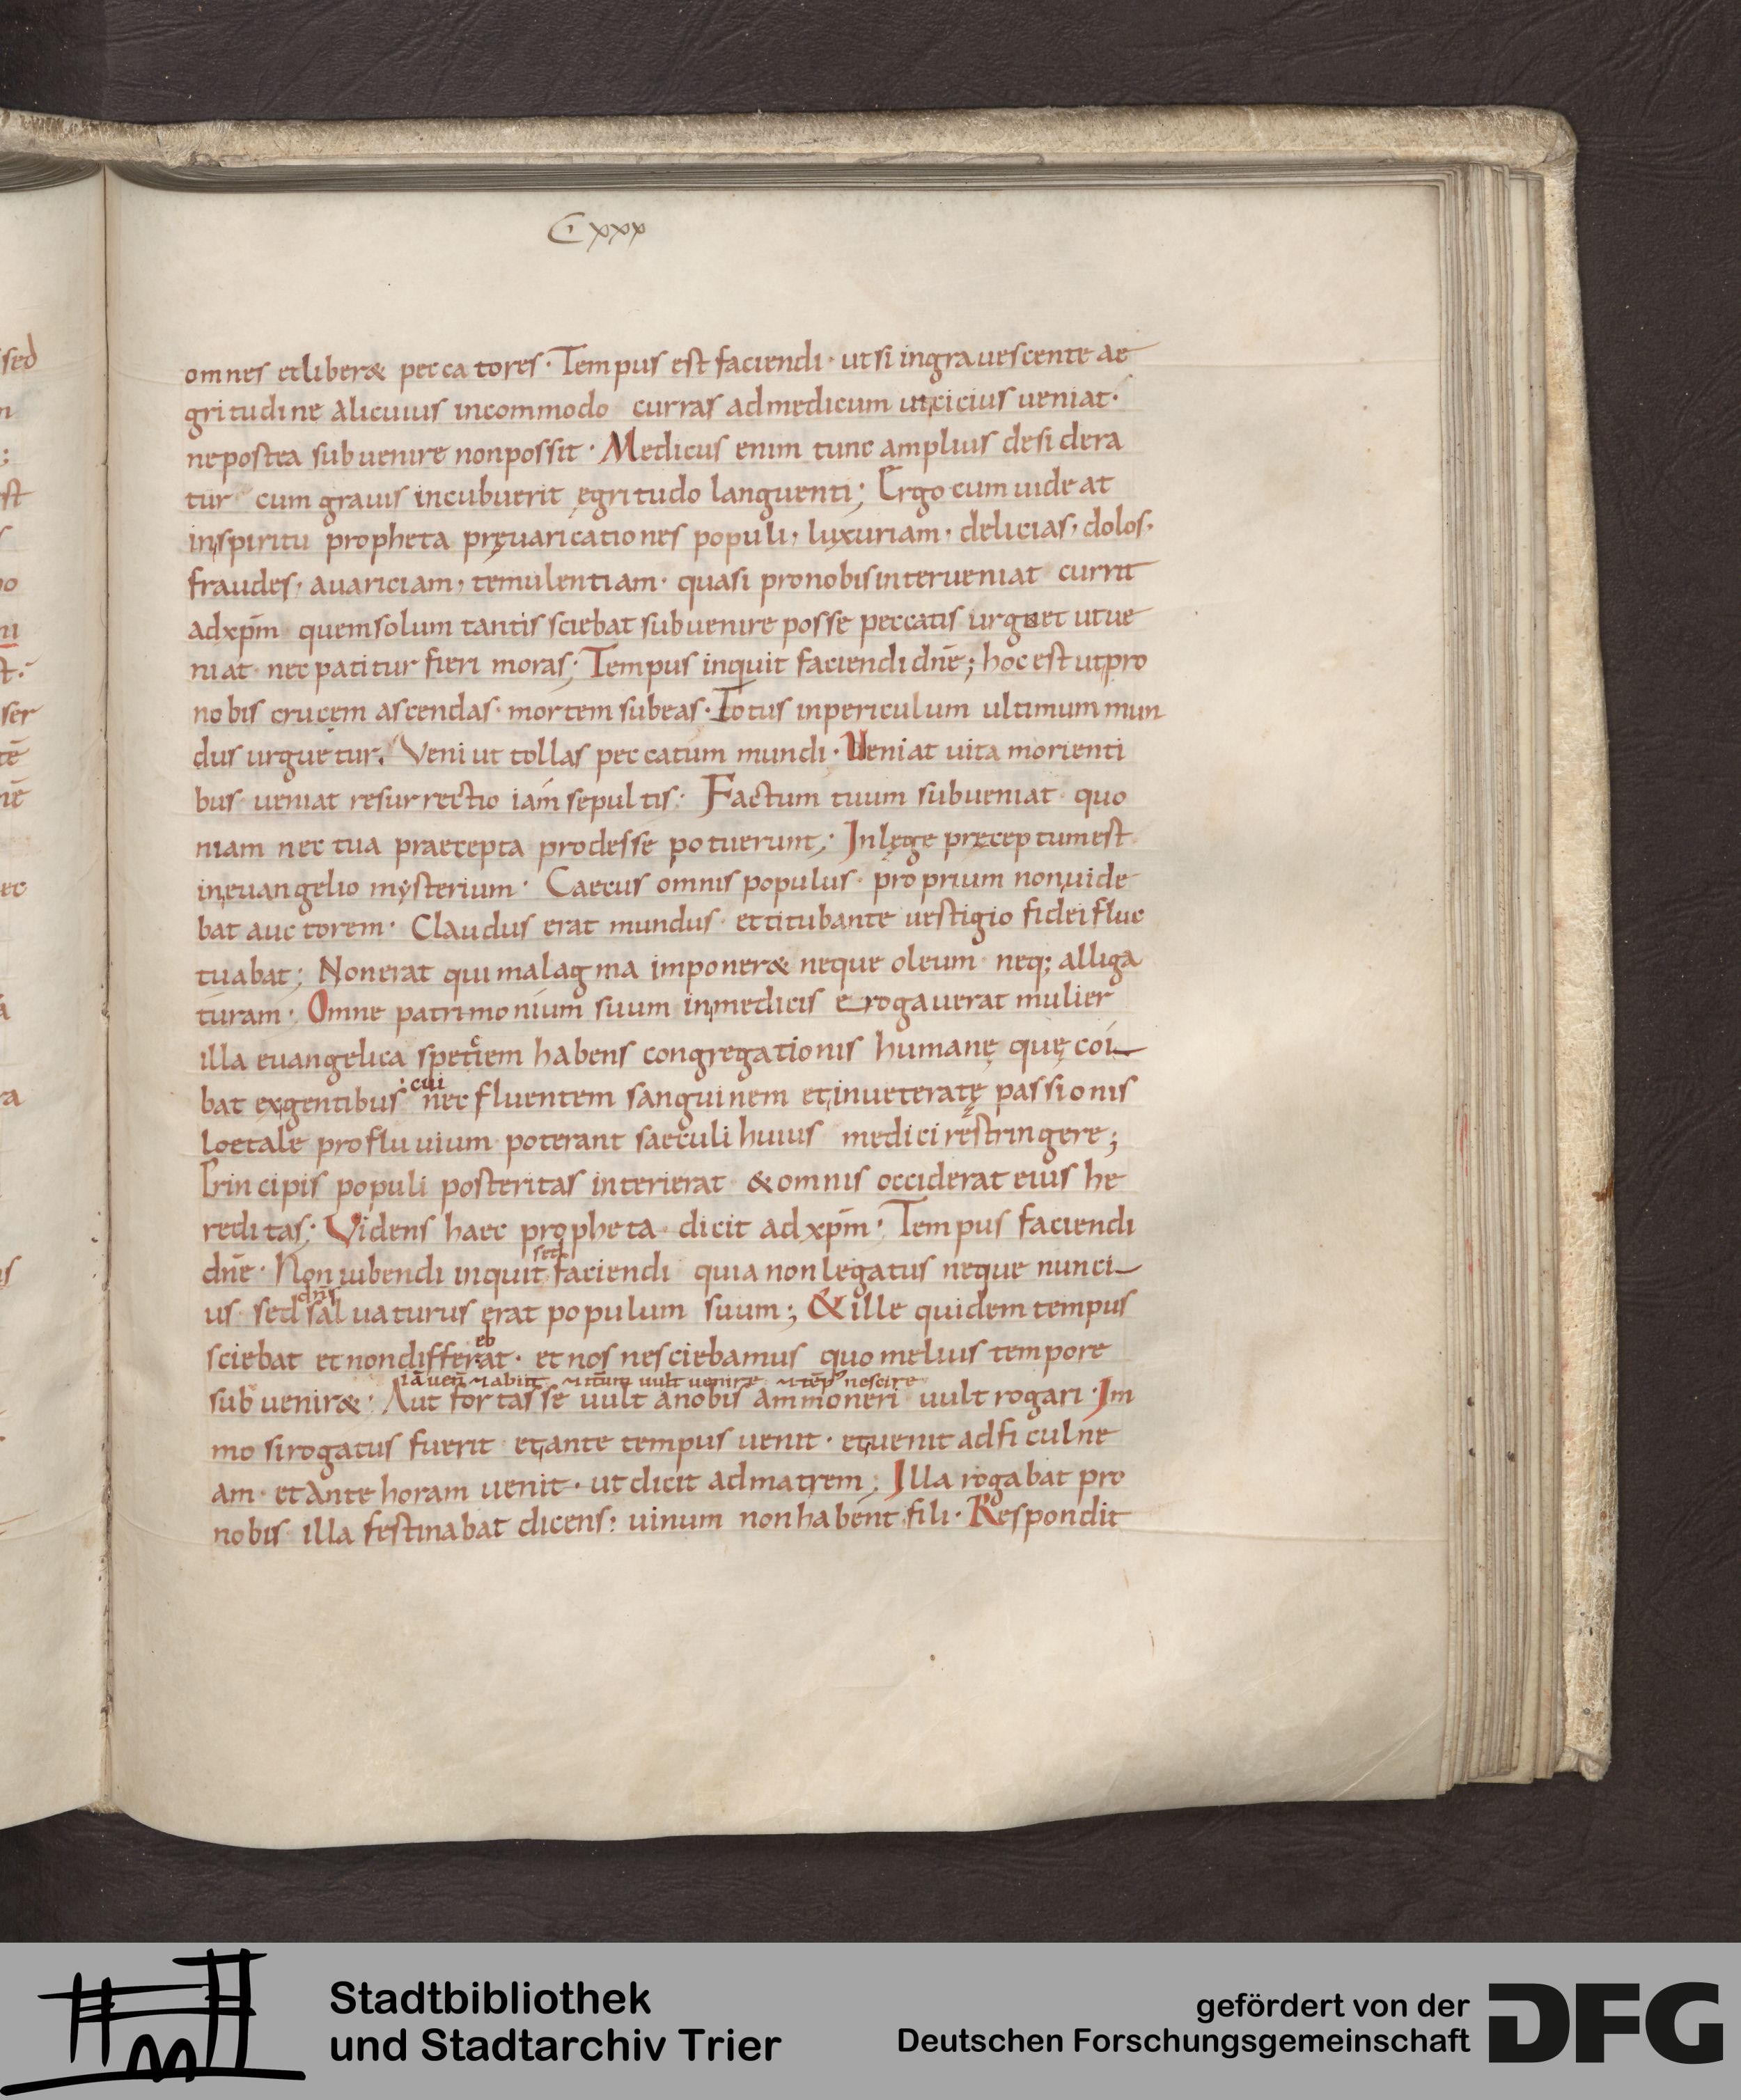 Cxxx
omnes et liber& peccatores · Tempus est faciendi · ut si ingrauescente ae
gritudine alicuius incommodo curras ad medicum ut cicius ueniat ·
ne postea subuenire non possit · Medicus enim tunc amplius desidera
tur cum grauis incubuerit ęgritudo languenti ; Ergo cum uideat
in spiritu propheta pręuaricationes populi · luxuriam · delicias · dolos ·
fraudes · auariciam · temulentiam · quasi pro nobis interueniat currit
ad xp̄m quem solum tantis sciebat subuenire posse peccatis urguet ut ue
niat nec patitur fieri moras ; Tempus inquit faciendi dn̄e ; hoc est ut pro
nobis crucem ascendas · mortem subeas · Totus in periculum ultimum mun
dus urguetur . Veni ut tollas peccatum mundi · Ueniat uita morienti
bus · ueniat resurrectio iam sepultis : Factum tuum subueniat quo
niam nec tua praecepta prodesse potuerunt ; In lege pręceptum est
in euangelio mysterium · Caecus omnis populus · proprium non uide
bat auctorem · Claudus erat mundus et titubante uestigio fidei fluc
tuabat ; Non erat qui malagma imponer& neque oleum neq; alliga
turam · Omne patrimonium suum in medicis erogauerat mulier
illa euangelica speciem habens congregationis humanę quę coi
bat ex gentibus : cui nec fluentem sanguinem et inueteratę passionis
loetale profluuium poterant saeculi huius medici restringere ;
Principis populi posteritas interierat & omnis occiderat eius he
reditas ; Videns haec propheta dicit ad xp̄m · Tempus faciendi
sed
dn̄e · Non iubendi inquit faciendi quia non legatus neque nunci
dn̄s
us sed saluaturus erat populum suum ; & ille quidem tempus
eb
sciebat et non differat · et nos nesciebamus quo melius tempore
subuenir& · Aut fortasse uult a nobis ammoneri uult rogari · Im
mo si rogatus fuerit et ante tempus uenit · et uenit ad ficulne
am · et ante horam uenit · ut dicit ad matrem ; Illa rogabat pro
nobis illa festinabat dicens : uinum non habent fili · Respondit
Stadtbibliothek
und Stadtarchiv Trier
gefördert von der
Deutschen Forschungsgemeinschaft
DFG